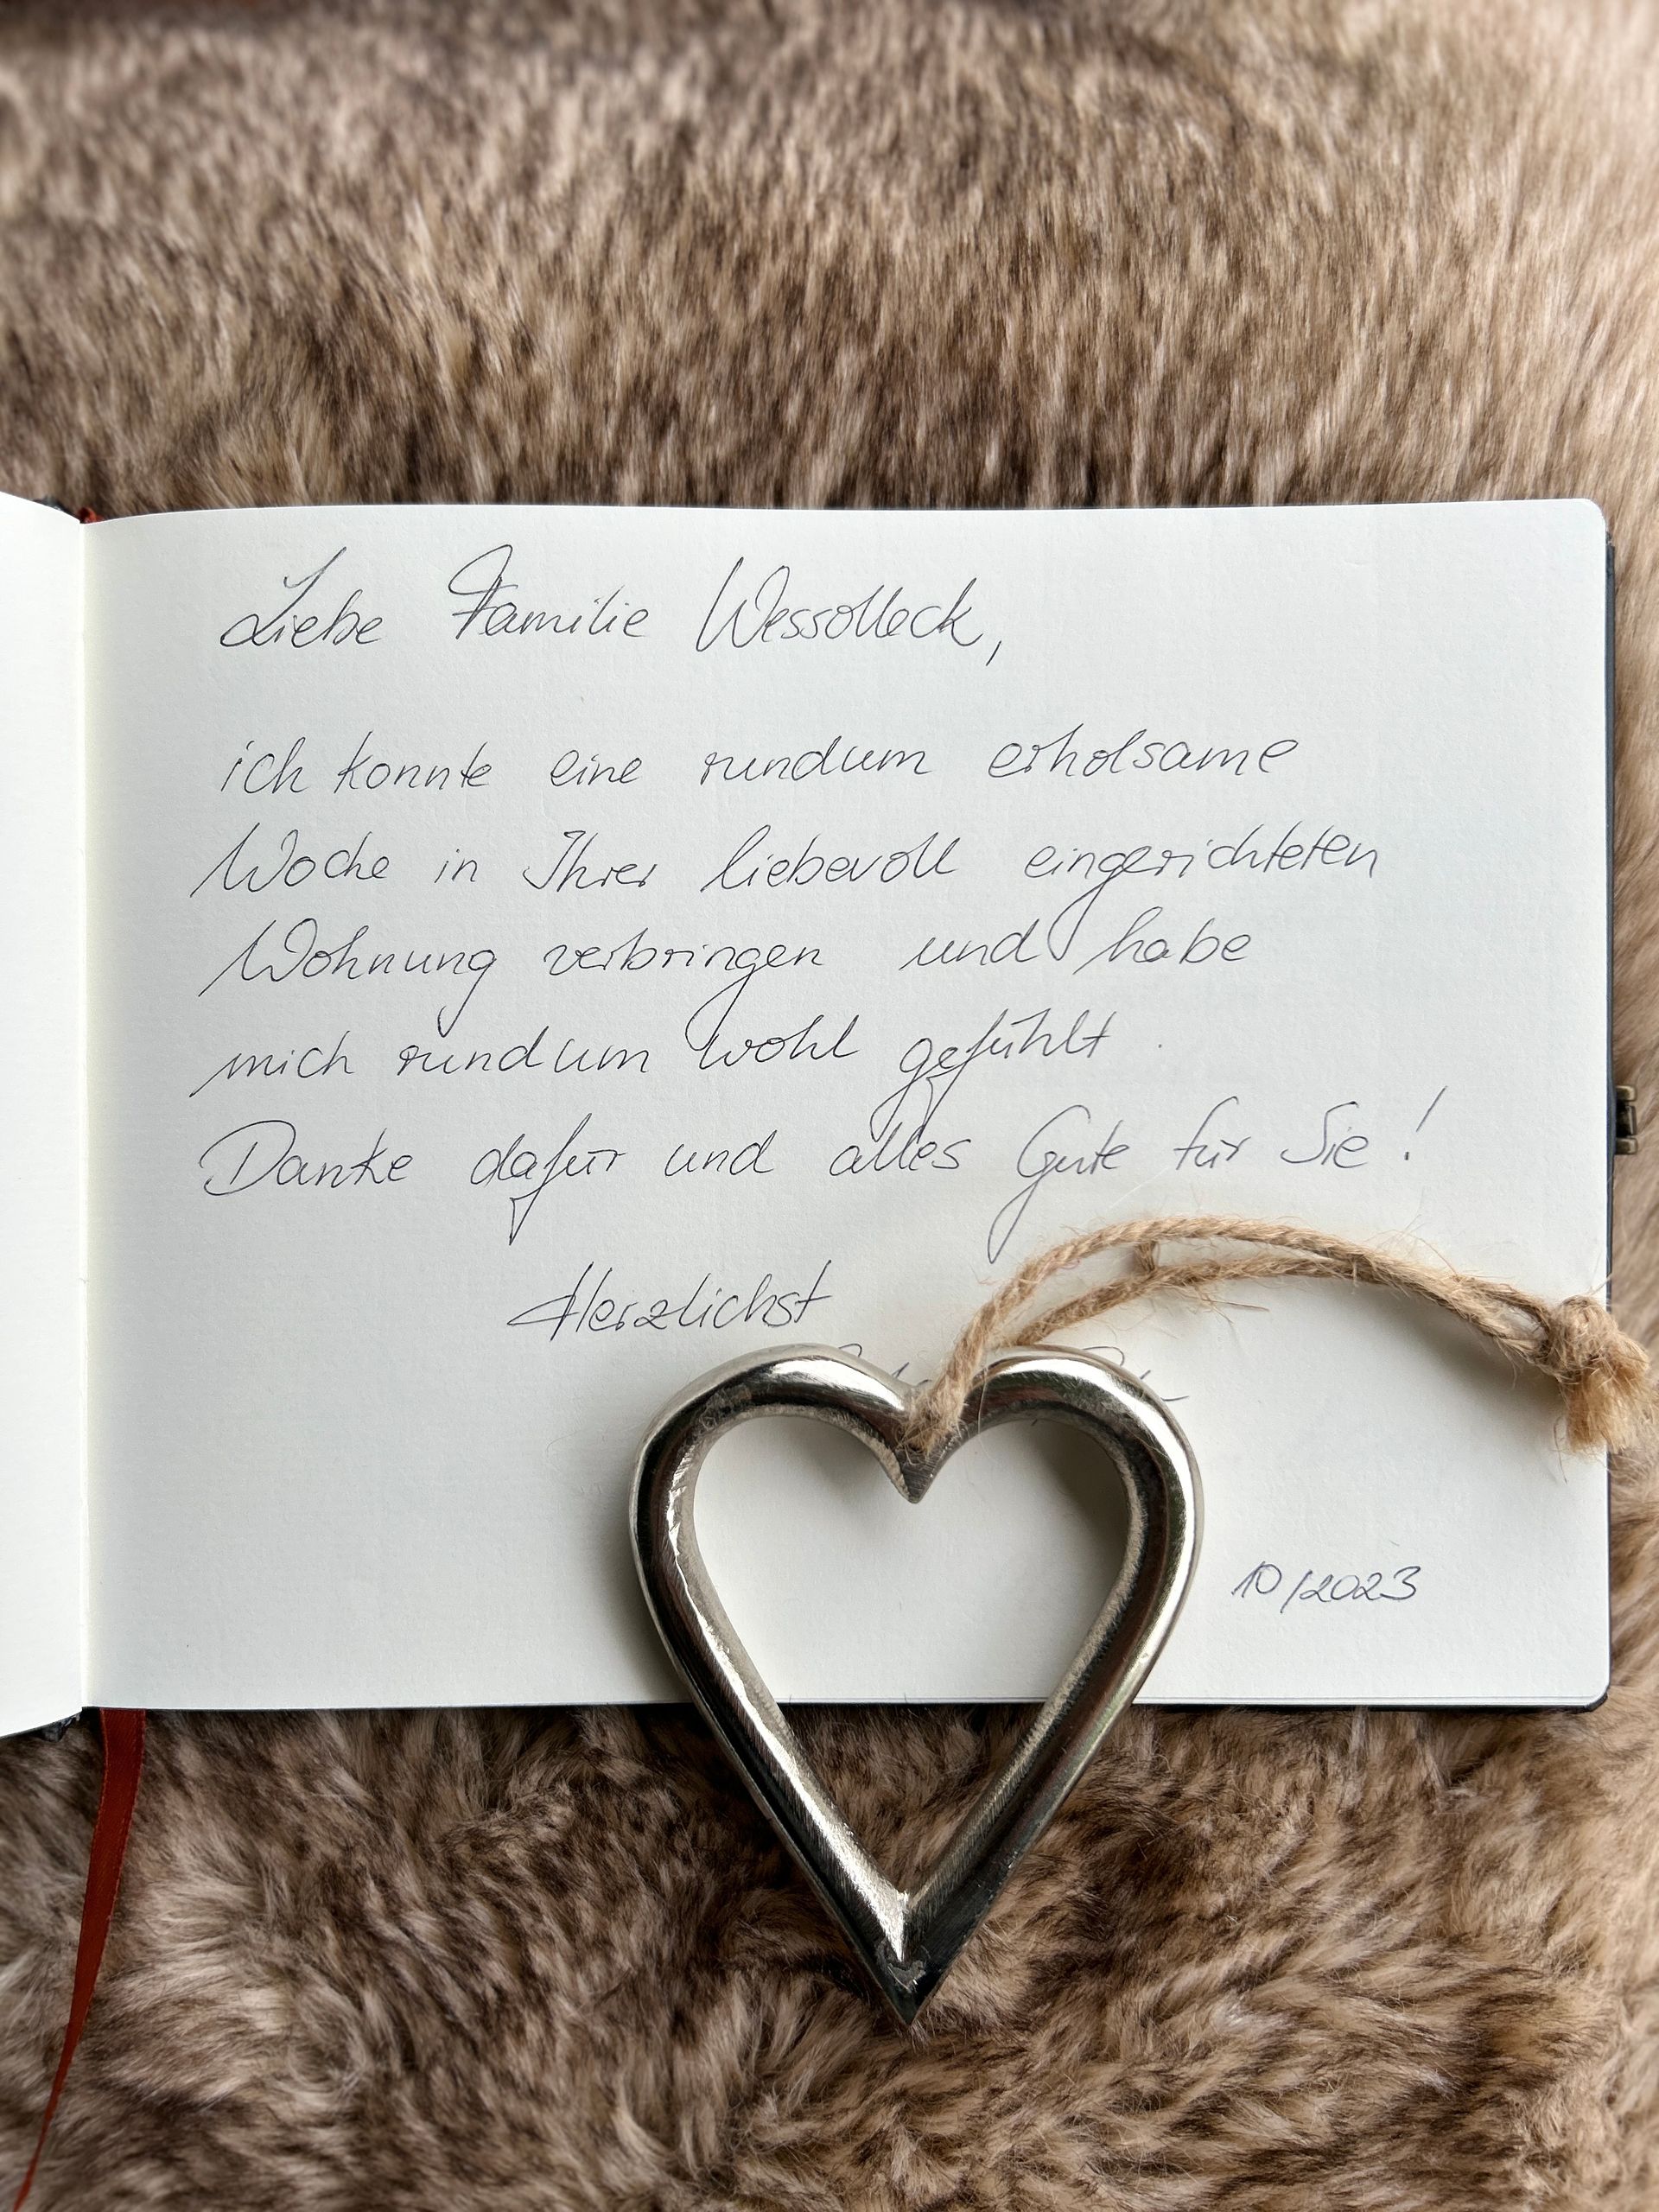 Liebe Familie Wessolleck,
ich konnte eine rundum erholsame
Woche in Ihrer liebevoll eingerichteten
Wohnung verbringen und habe
mich rundum wohl gefühlt.
Danke dafür und alles Gute für Sie!
Herzlichst
10/2023